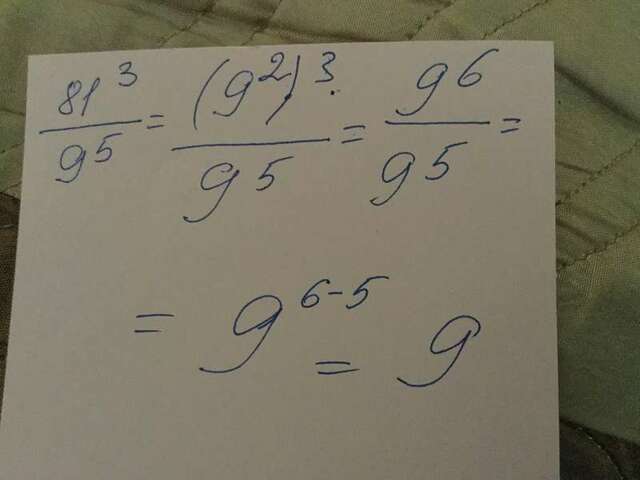 81³/9⁵ = (9²)³/9⁵ = 9⁶/9⁵ =
= 9⁶⁻⁵ = 9